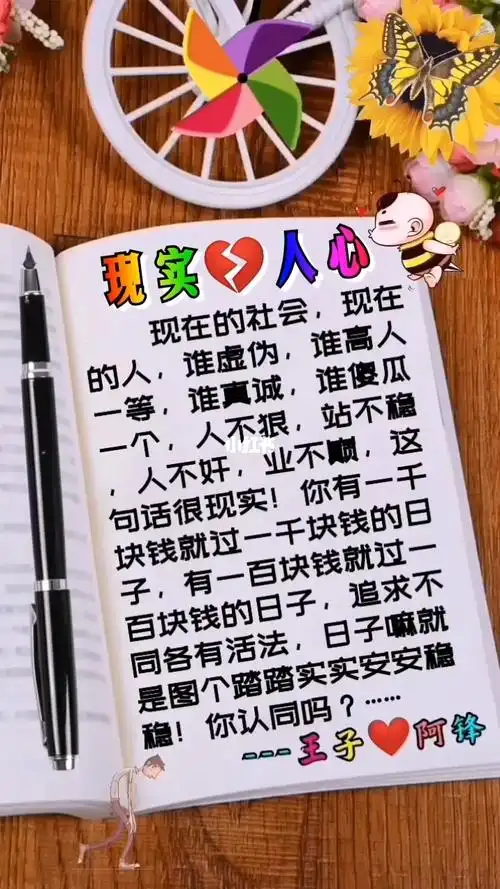 现实💔人心
现在的社会，现在
的人，谁虚伪，谁高人
一等，谁真诚，谁傻瓜
一个，人不狠，站不稳
，人不奸，业不巅，这
句话很现实！你有一千
块钱就过一千块钱的日
子，有一百块钱就过一
百块钱的日子，追求不
同各有活法，日子嘛就
是图个踏踏实实安安稳
稳！你认同吗？……
---王子❤阿锋
小红书